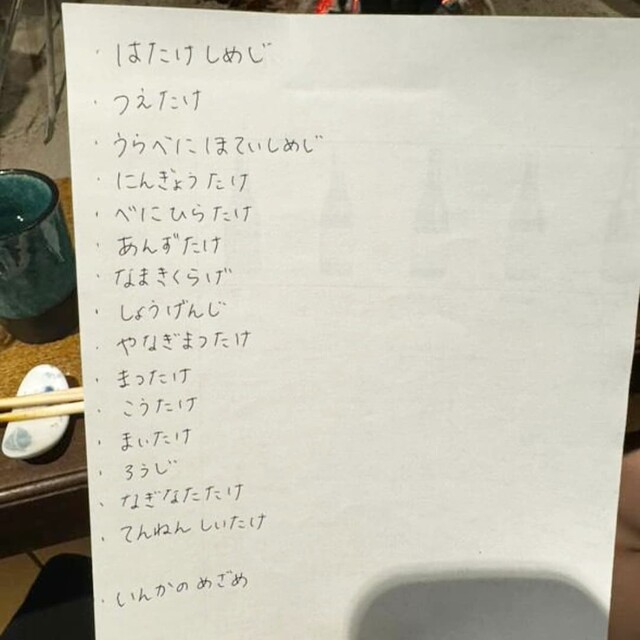 ・はたけしめじ
・つえたけ
・うらべにほていしめじ
・にんぎょうたけ
・べにひらたけ
・あんずたけ
・なまきくらげ
・しょうげんじ
・やなぎまつたけ
・まつたけ
・こうたけ
・まいたけ
・ろうじ
・なぎなたたけ
・てんねんしいたけ
・いんかのめざめ